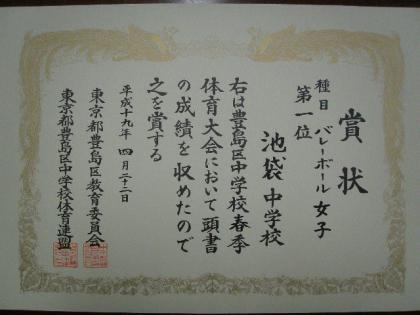 賞状
種目 バレーボール女子
第一位
池袋中学校
右は豊島区中学校春季
体育大会において頭書
の成績を収めたので
之を賞する
平成十九年 四月二十二日
東京都豊島区教育委員会
東京都豊島区中学校体育連盟